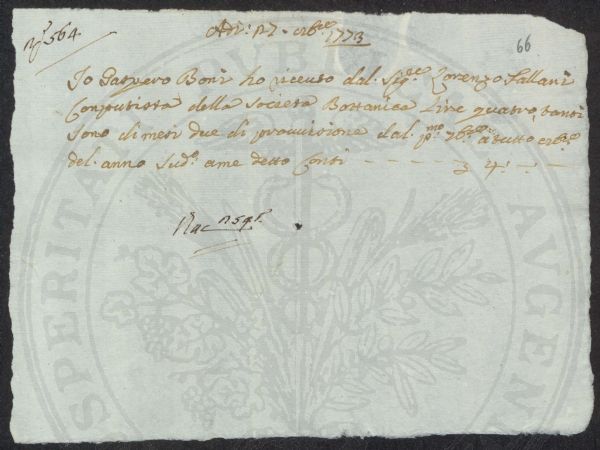 N.º 564.
Adi: 27. 8bre 1773
66
Io Gaspero Boni ho riceuto dal. Sig.re Lorenzo Fallani
Conputista della Società Bottanica Lire quatro, tanti
sono di mesi due di provvisione dal. p.mo 7bre a tutto 8bre
del. anno Sud.o a me detto Conti - - - - - - - - 4: -
PROSPERITATI AVGENDAE